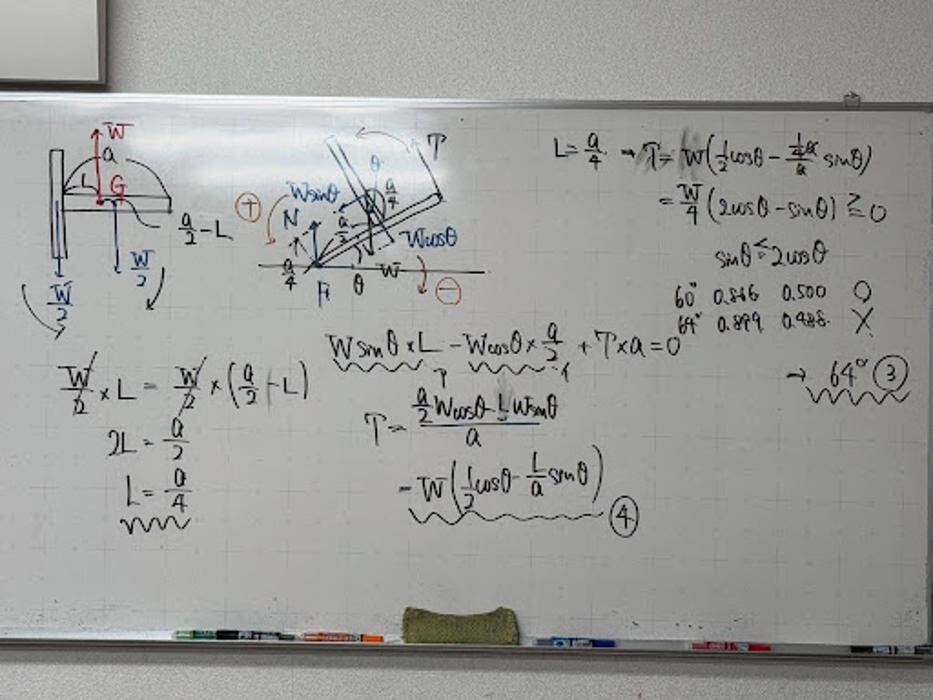 W
a
L
G
a/2 - L
W/2
W/2
T
θ
Wsinθ
a/4
N
a/2
Wcosθ
⊕
a/4
W
F
θ
⊖
W/2 × L = W/2 × (a/2 - L)
2L = a/2
L = a/4
Wsinθ × L - Wcosθ × a/2 + T × a = 0
T = (a/2 Wcosθ - L Wsinθ)/a
= W(1/2 cosθ - L/a sinθ)
④
L = a/4 → T = W(1/2 cosθ - 1/4a/a sinθ)
= W/4 (2cosθ - sinθ) ≧ 0
sinθ ≦ 2cosθ
60° 0.866 0.500 ○
64° 0.899 0.438 ×
→ 64° ③